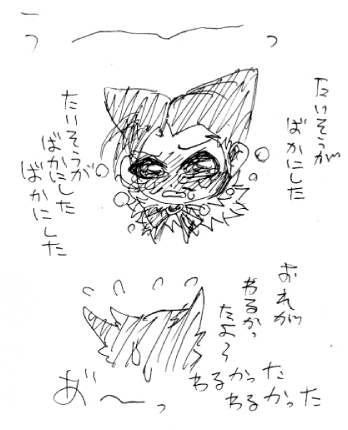 たいそうが
ばかにした
たいそうが
ばかにした
ばかにした
おれが
わるかっ
たよ〜
わるかった
わるかった
あ゛〜っ